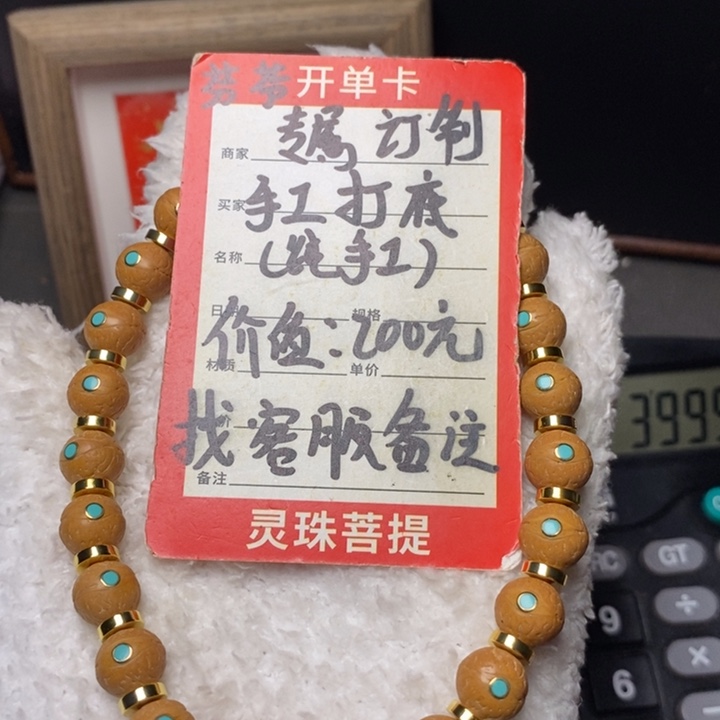 芳苓开单卡
商家 专属订制
买家 手工打底
名称 (纯手工)
日期 规格
价值:200元
材质 单价
找客服备注
备注
灵珠菩提
3999
GT
÷
9
×
6